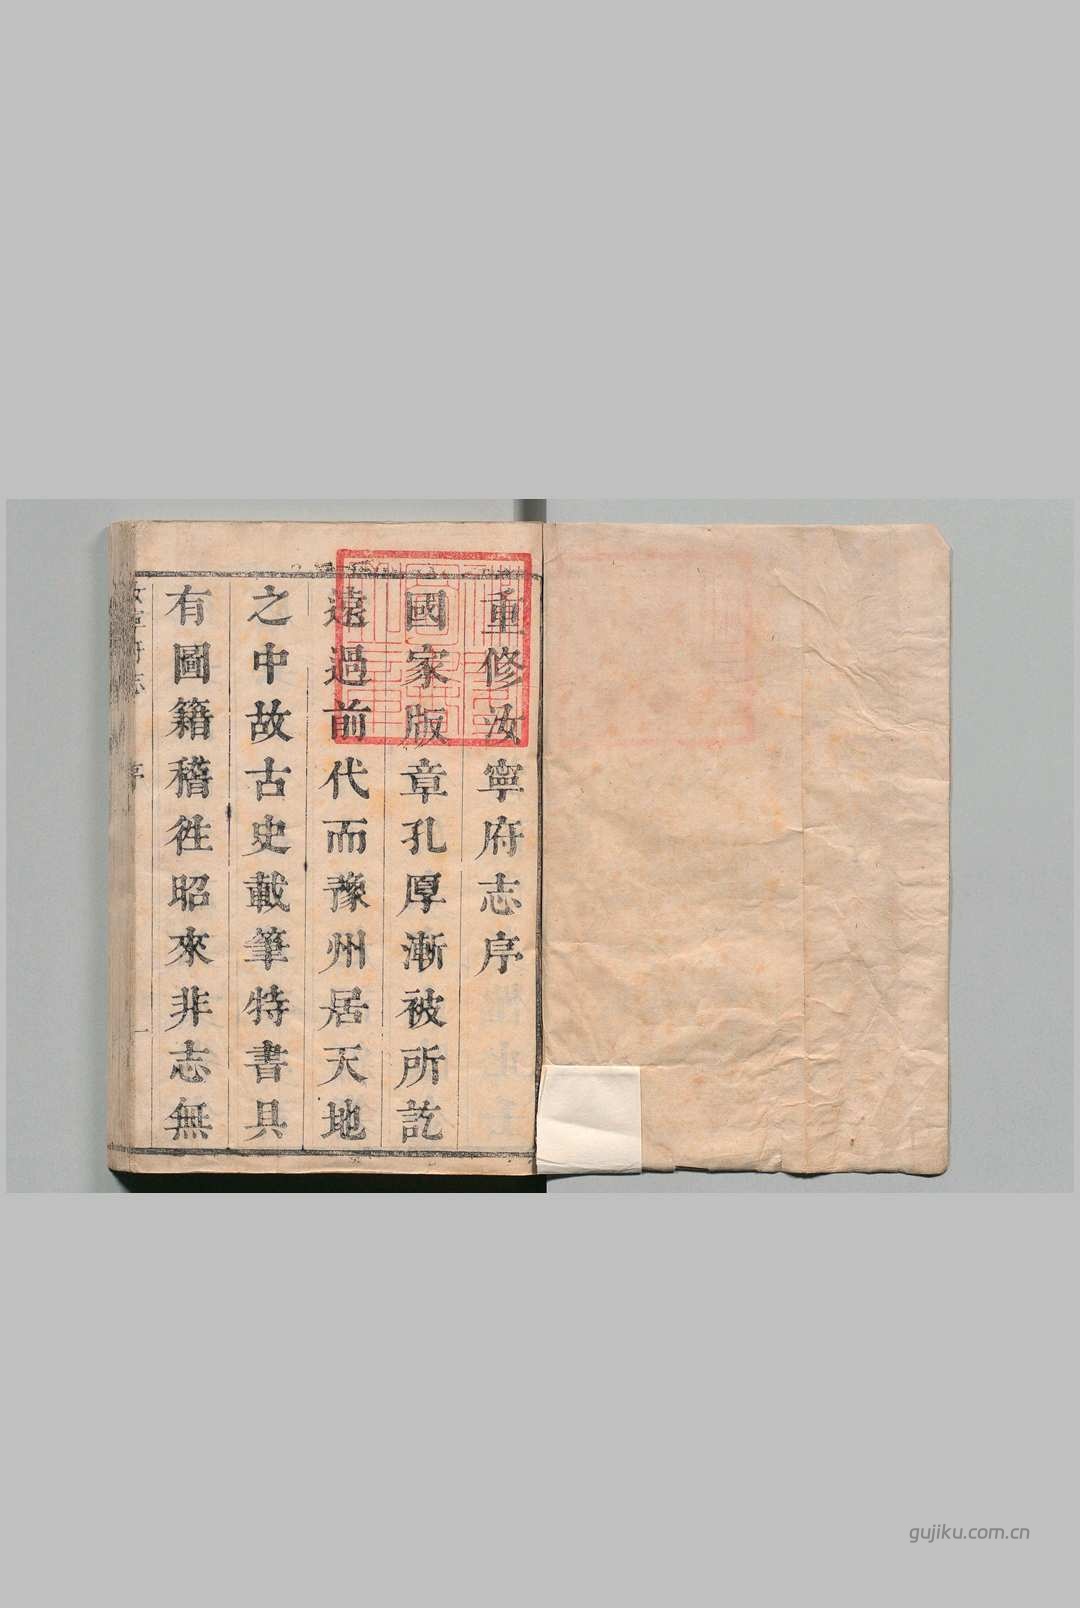 重修汝寧府志序
國家版章孔厚漸被所訖
遠過前代而豫州居天地
之中故古史載筆特書具
有圖籍稽徃昭來非志無
汝寧府志 序 一
gujiku.com.cn